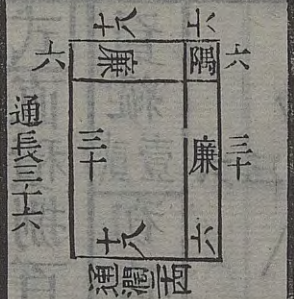 十八
六
六
廉
隅
六
通長三十六
三十
廉
三十
十八
六
通濶二十四